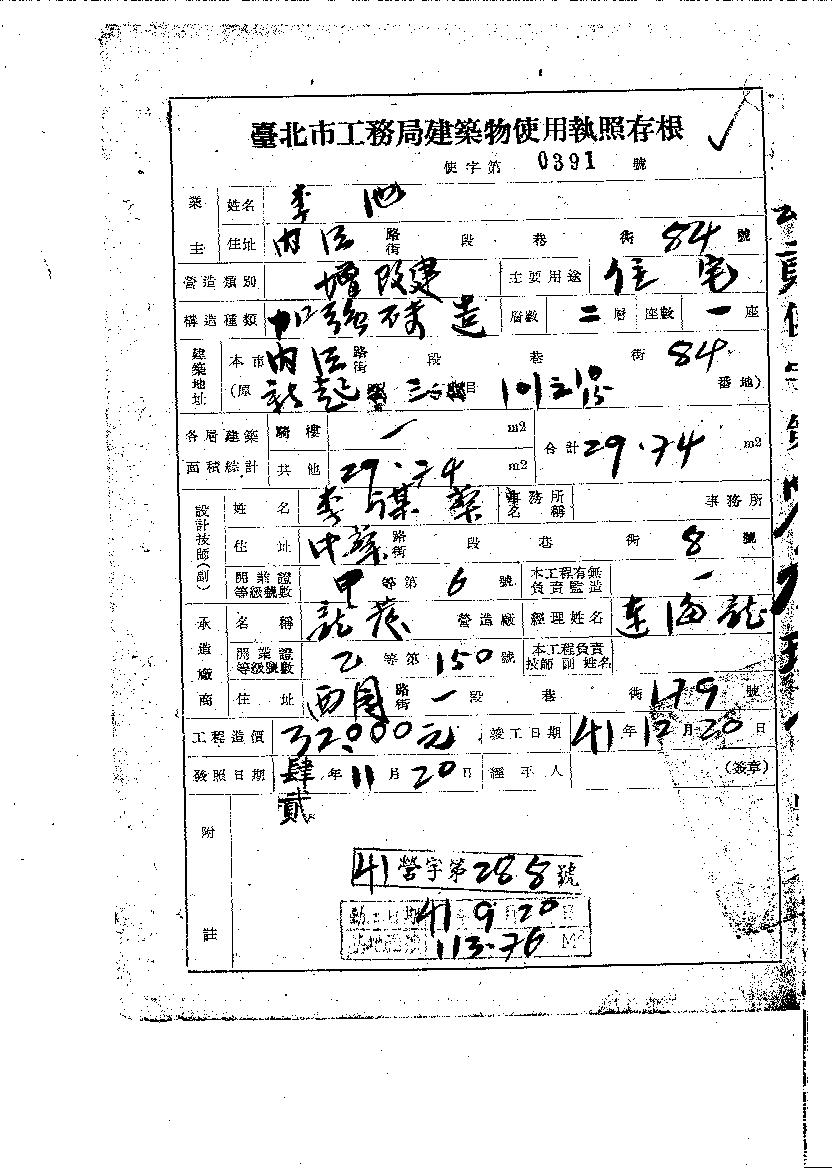 臺北市工務局建築物使用執照存根
使字第 0391 號
業主 姓名 李
住址 內江 路街 段 巷 街 84 號
營造類別 增改建 主要用途 住宅
構造種類 加強磚造 層數 二層 座數 一座
建築地址 本市 內江 路街 段 巷 街 84
(原 新起 三 目 101 番地)
各層建築面積綜計 騎樓 / m2 合計 29.74 m2
其他 29.74 m2
設計技師(副) 姓名 李 事務所名稱 事務所
住址 中華 路街 段 巷 街 8 號
開業證等級號數 甲 等第 6 號 本工程有無負責監造 /
承造廠商 名稱 龍 營造廠 經理姓名 海龍
開業證等級號數 乙 等第 150 號 本工程負責技師副姓名
住址 西園 路街 一段 巷 街 179 號
工程造價 32,000元 竣工日期 41年12月20日
發照日期 肆貳年11月20日 經手人 (簽章)
附註
41營字第288號
41 9 20 日
113.76 M²